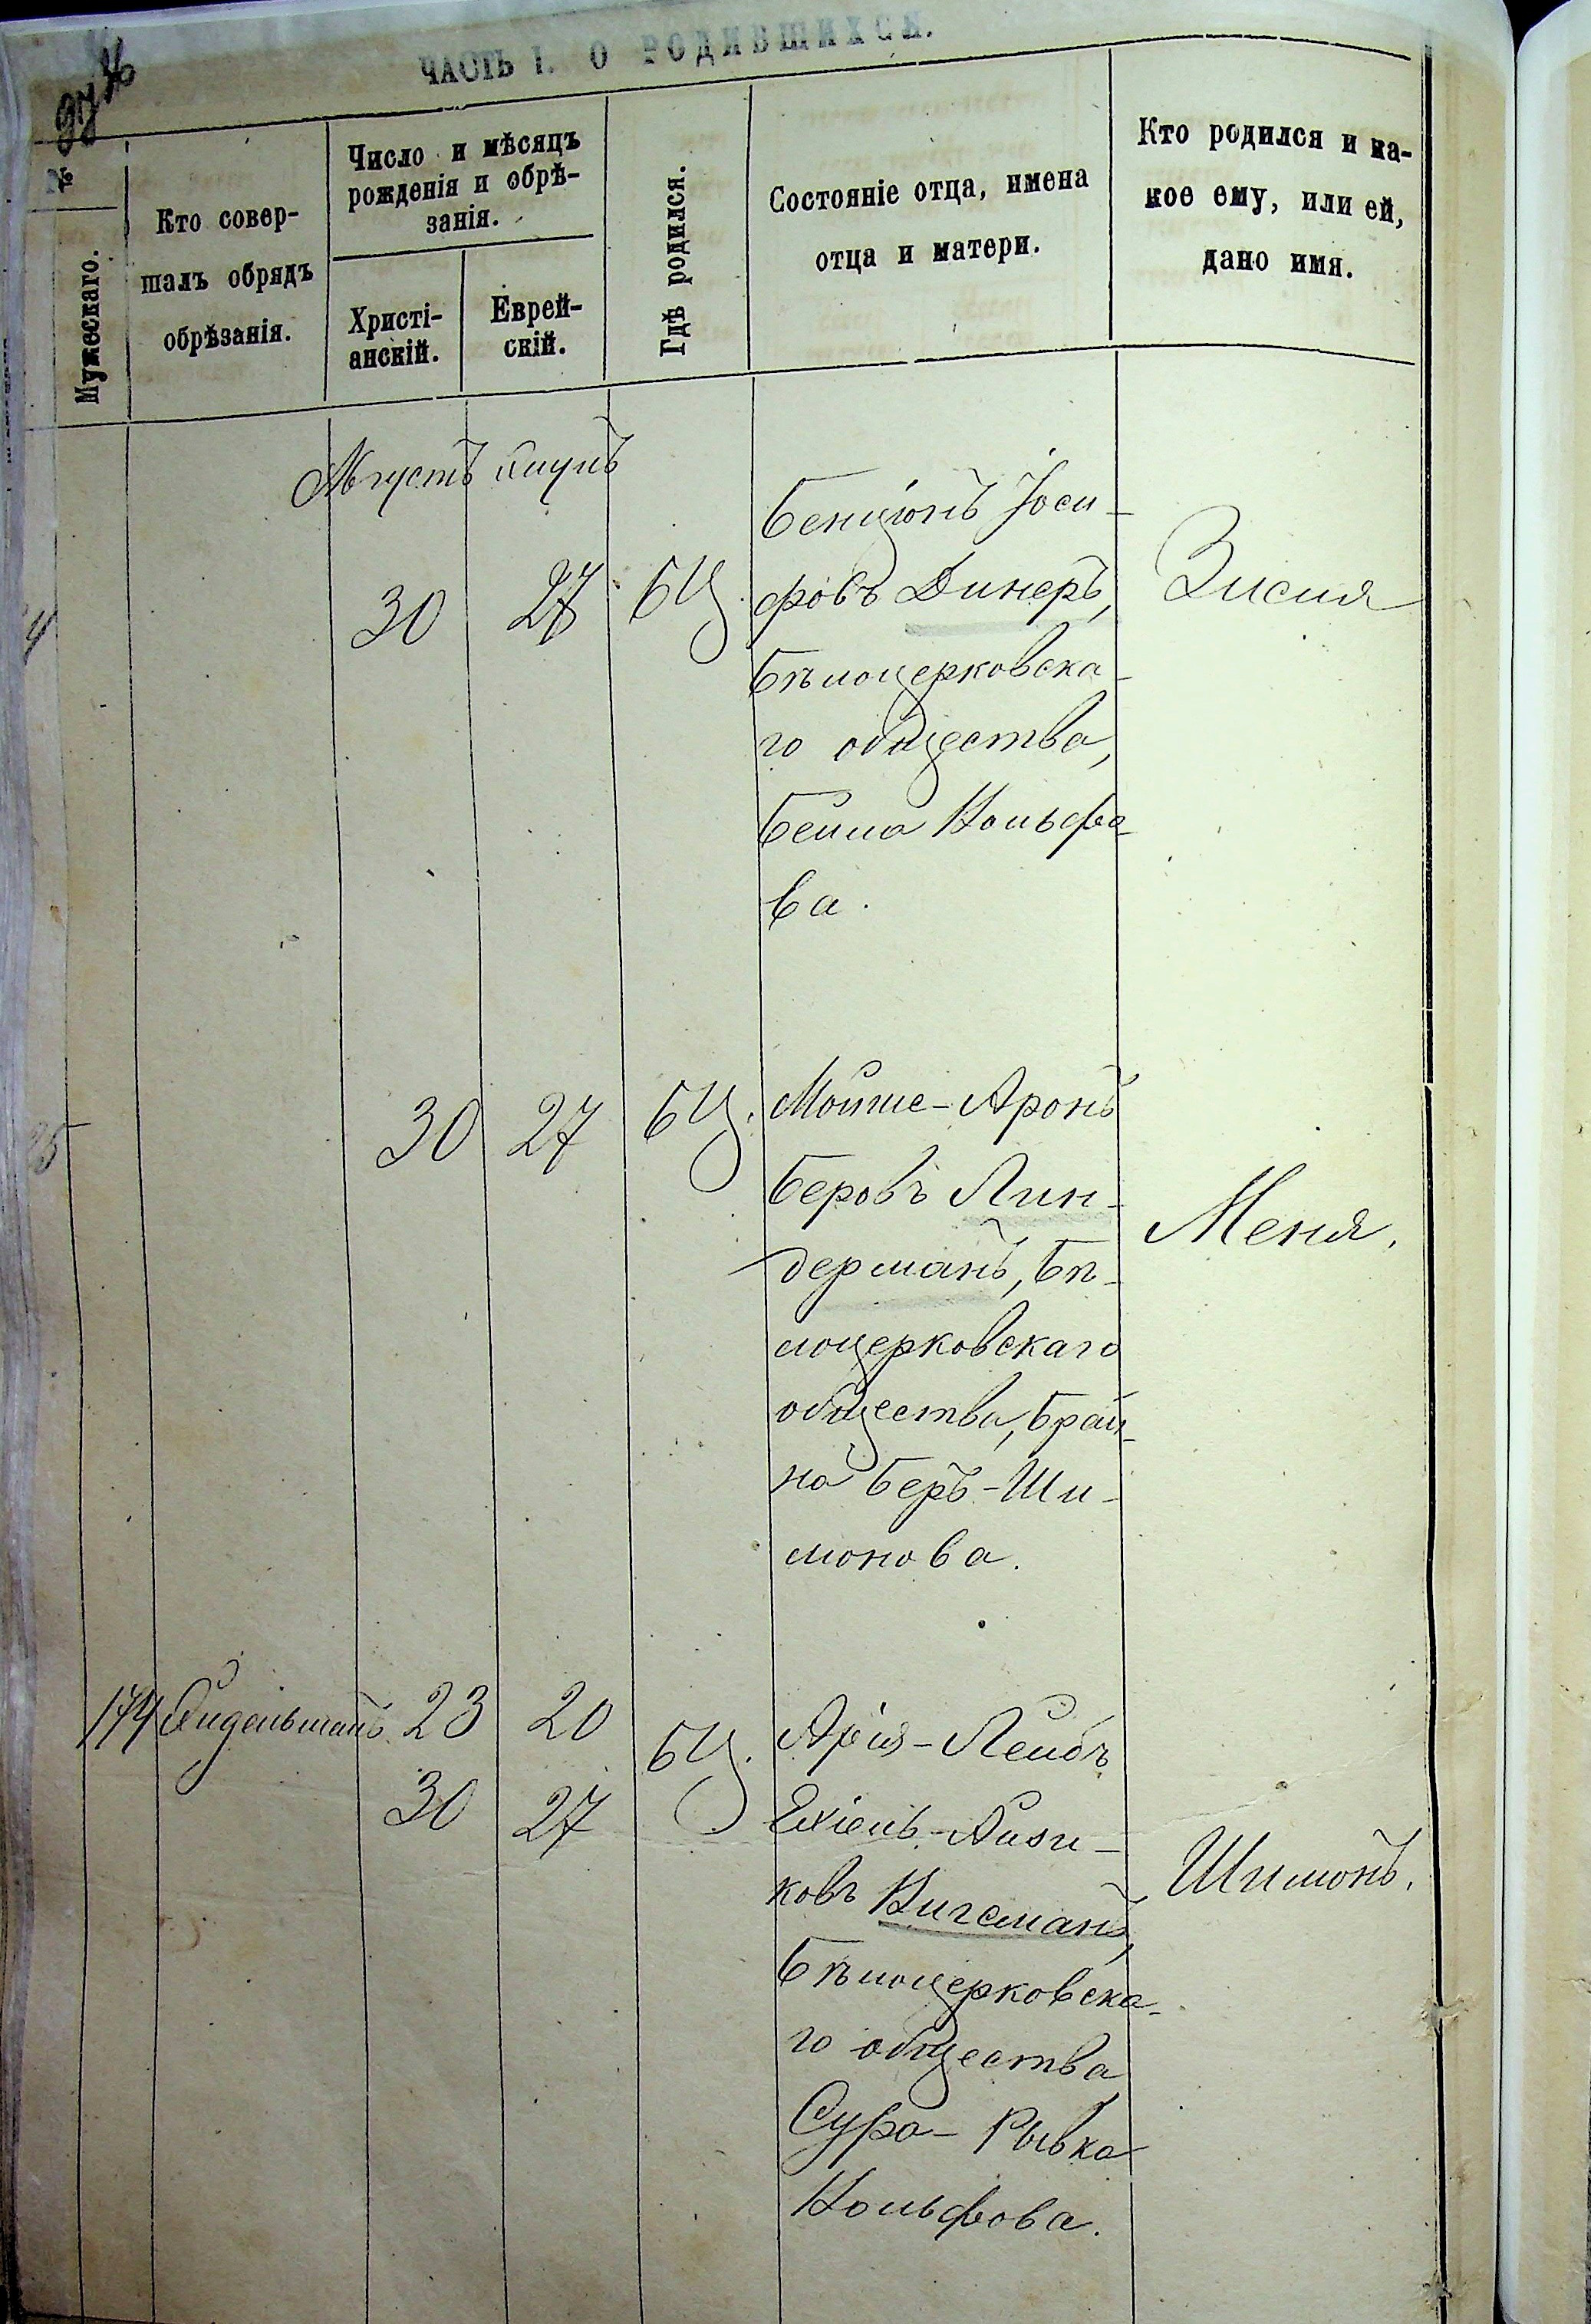 ЧАСТЬ I. О РОДИВШИХСЯ.
№
Мужескаго.
Кто совер-
шалъ обрядъ
обрѣзанія.
Число и мѣсяцъ
рожденія и обрѣ-
занія.
Христі-
анскій.
Еврей-
скій.
Гдѣ родился.
Состояніе отца, имена
отца и матери.
Кто родился и ка-
кое ему, или ей,
дано имя.
Августъ
30 27 БЦ.
Бенціонъ Іоси-
фовъ Динеръ,
Бѣлоцерковска-
го общества,
Бейла Вольфо-
ва.
Зисля
30 27 БЦ.
Мойше-Аронъ
Беровъ Лин-
дерманъ, Бѣ-
лоцерковскаго
общества, Брай-
на Беръ-Ши-
монова.
Меня.
174 23 20 БЦ.
30 27
Арія-Лейбъ
Ехіель-Айзи-
ковъ Вигсманъ,
Бѣлоцерковска-
го общества
Сура-Рывка
Вольфова.
Шимонъ.